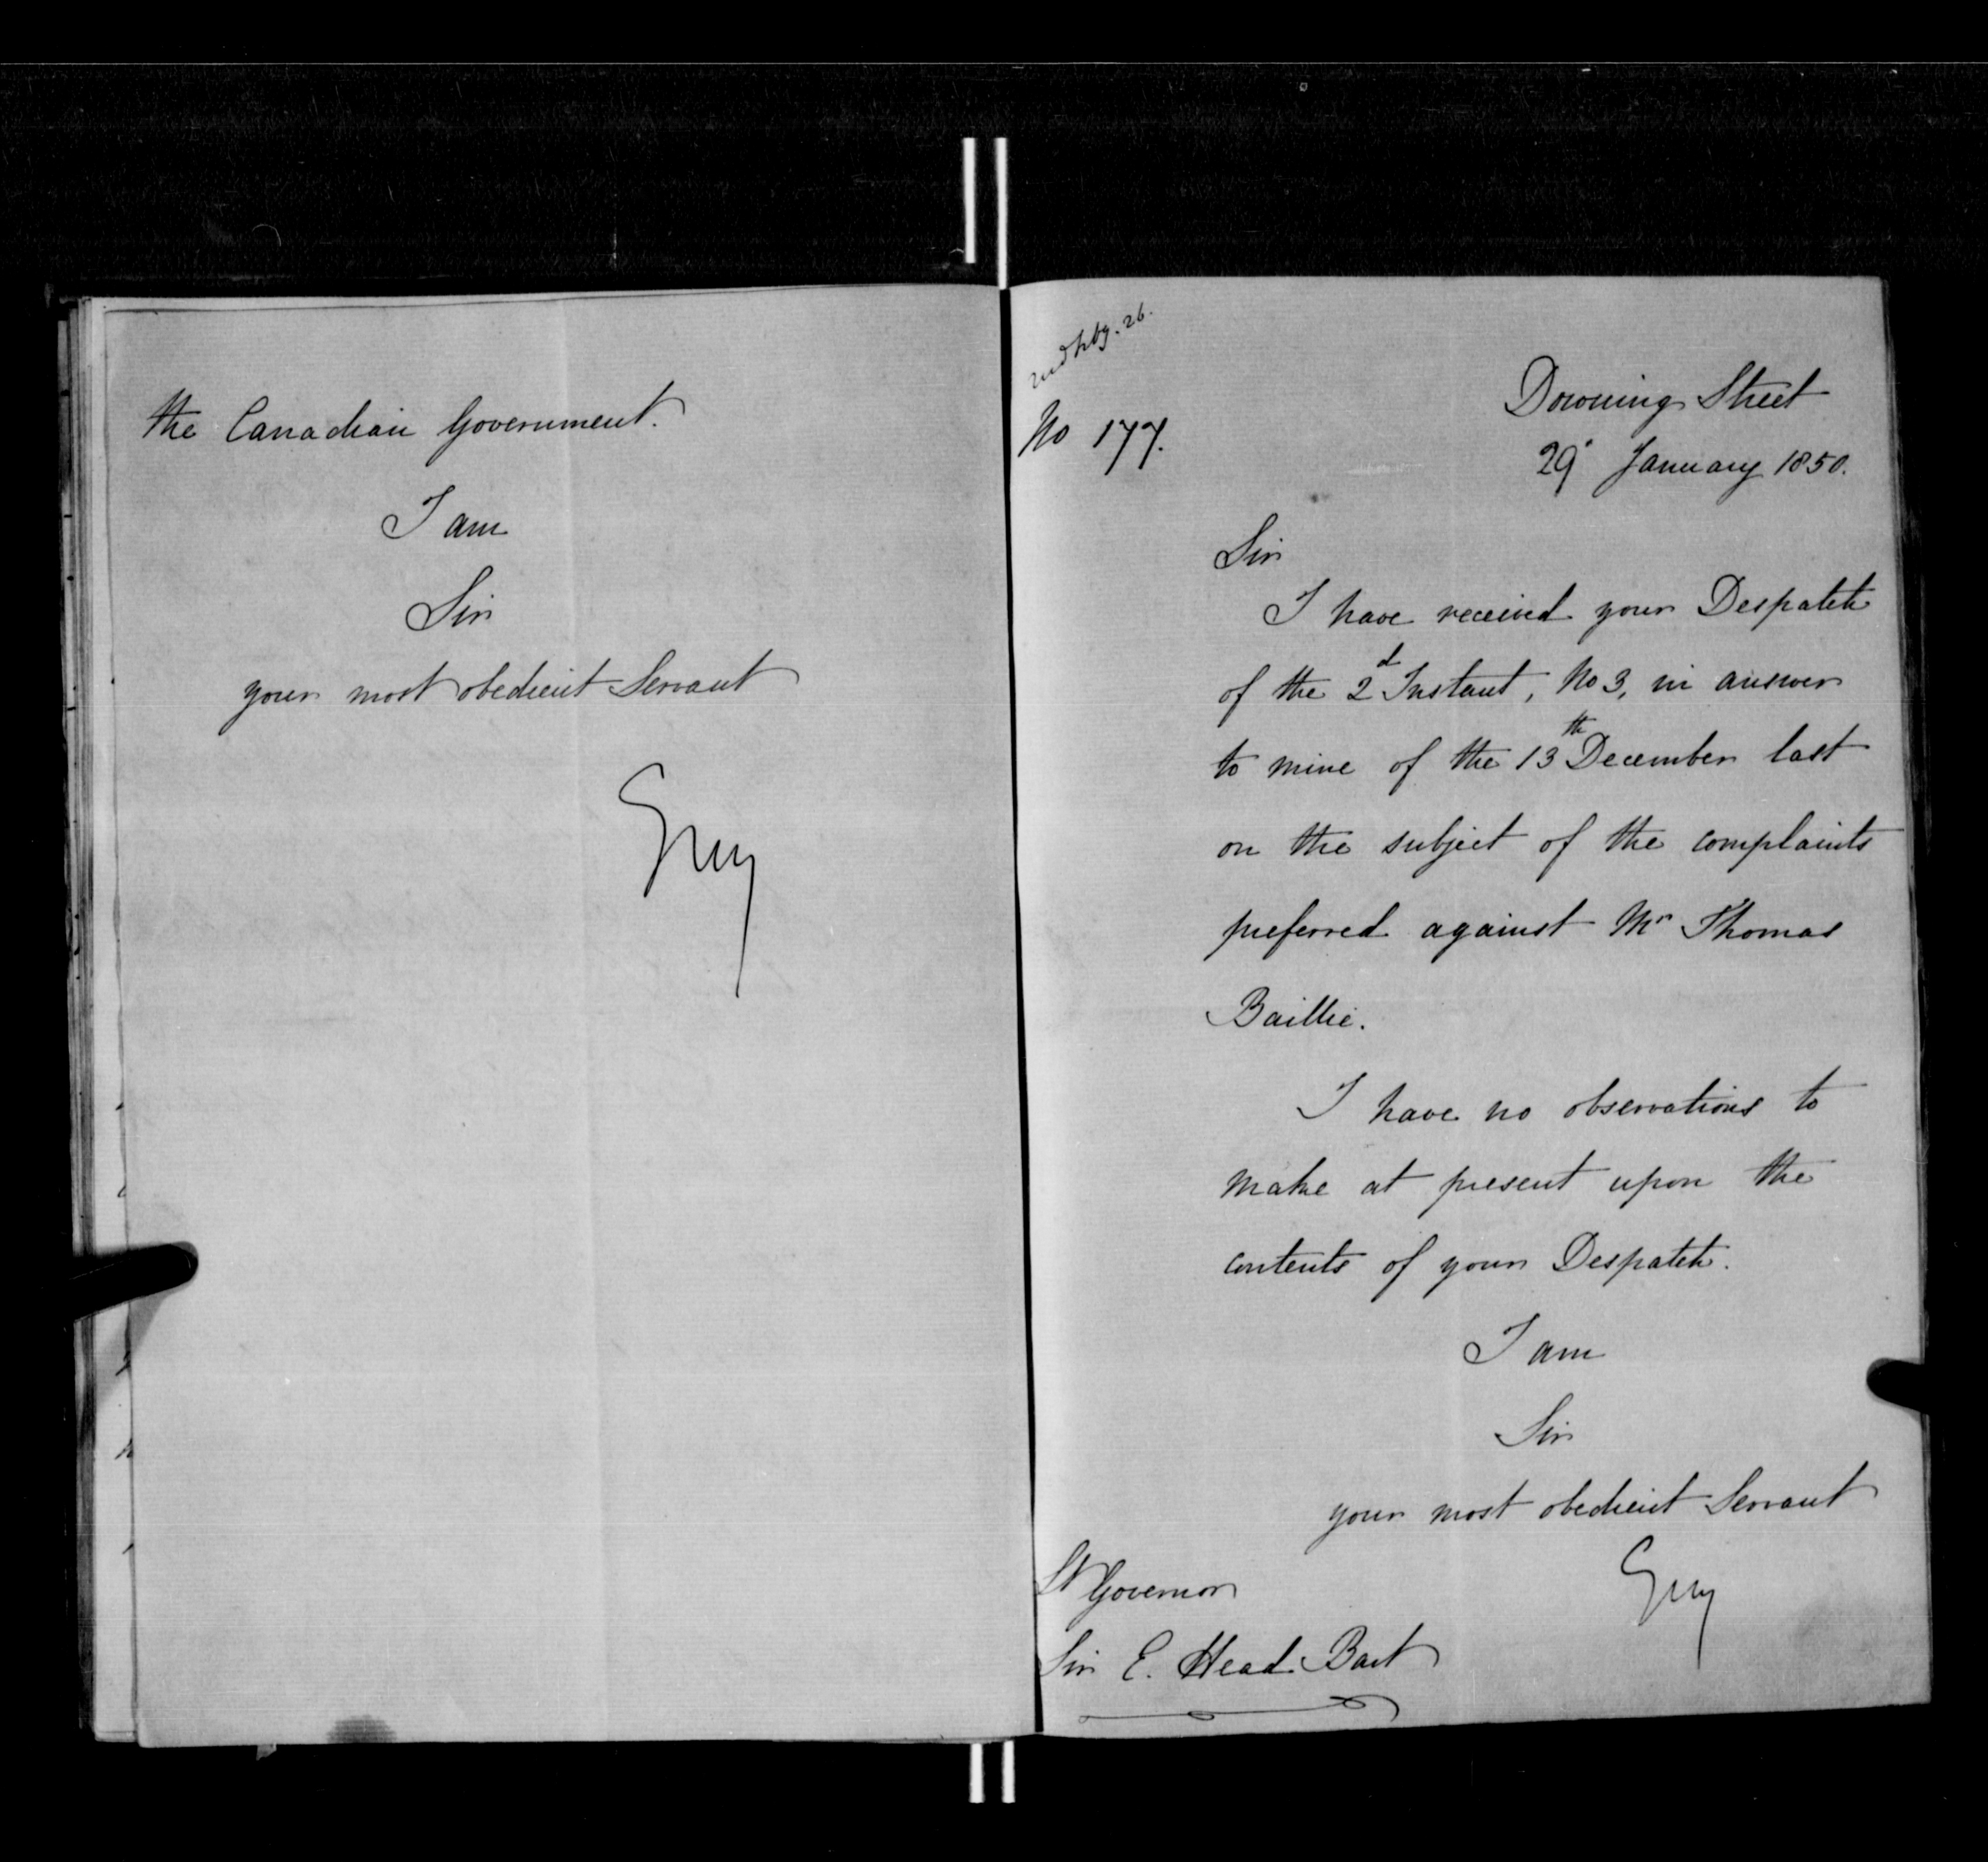 the Canadian Government.
I am
Sir
your most obedient Servant
Grey
26.
No 177.
Downing Street
29 January 1850.
Sir
I have received your Despatch
of the 2d Instant, No 3, in answer
to mine of the 13th December last
on the subject of the complaints
preferred against Mr Thomas
Baillie.
I have no observations to
make at present upon the
contents of your Despatch.
I am
Sir
your most obedient Servant
Grey
Lt Governor
Sir E. Head Bart